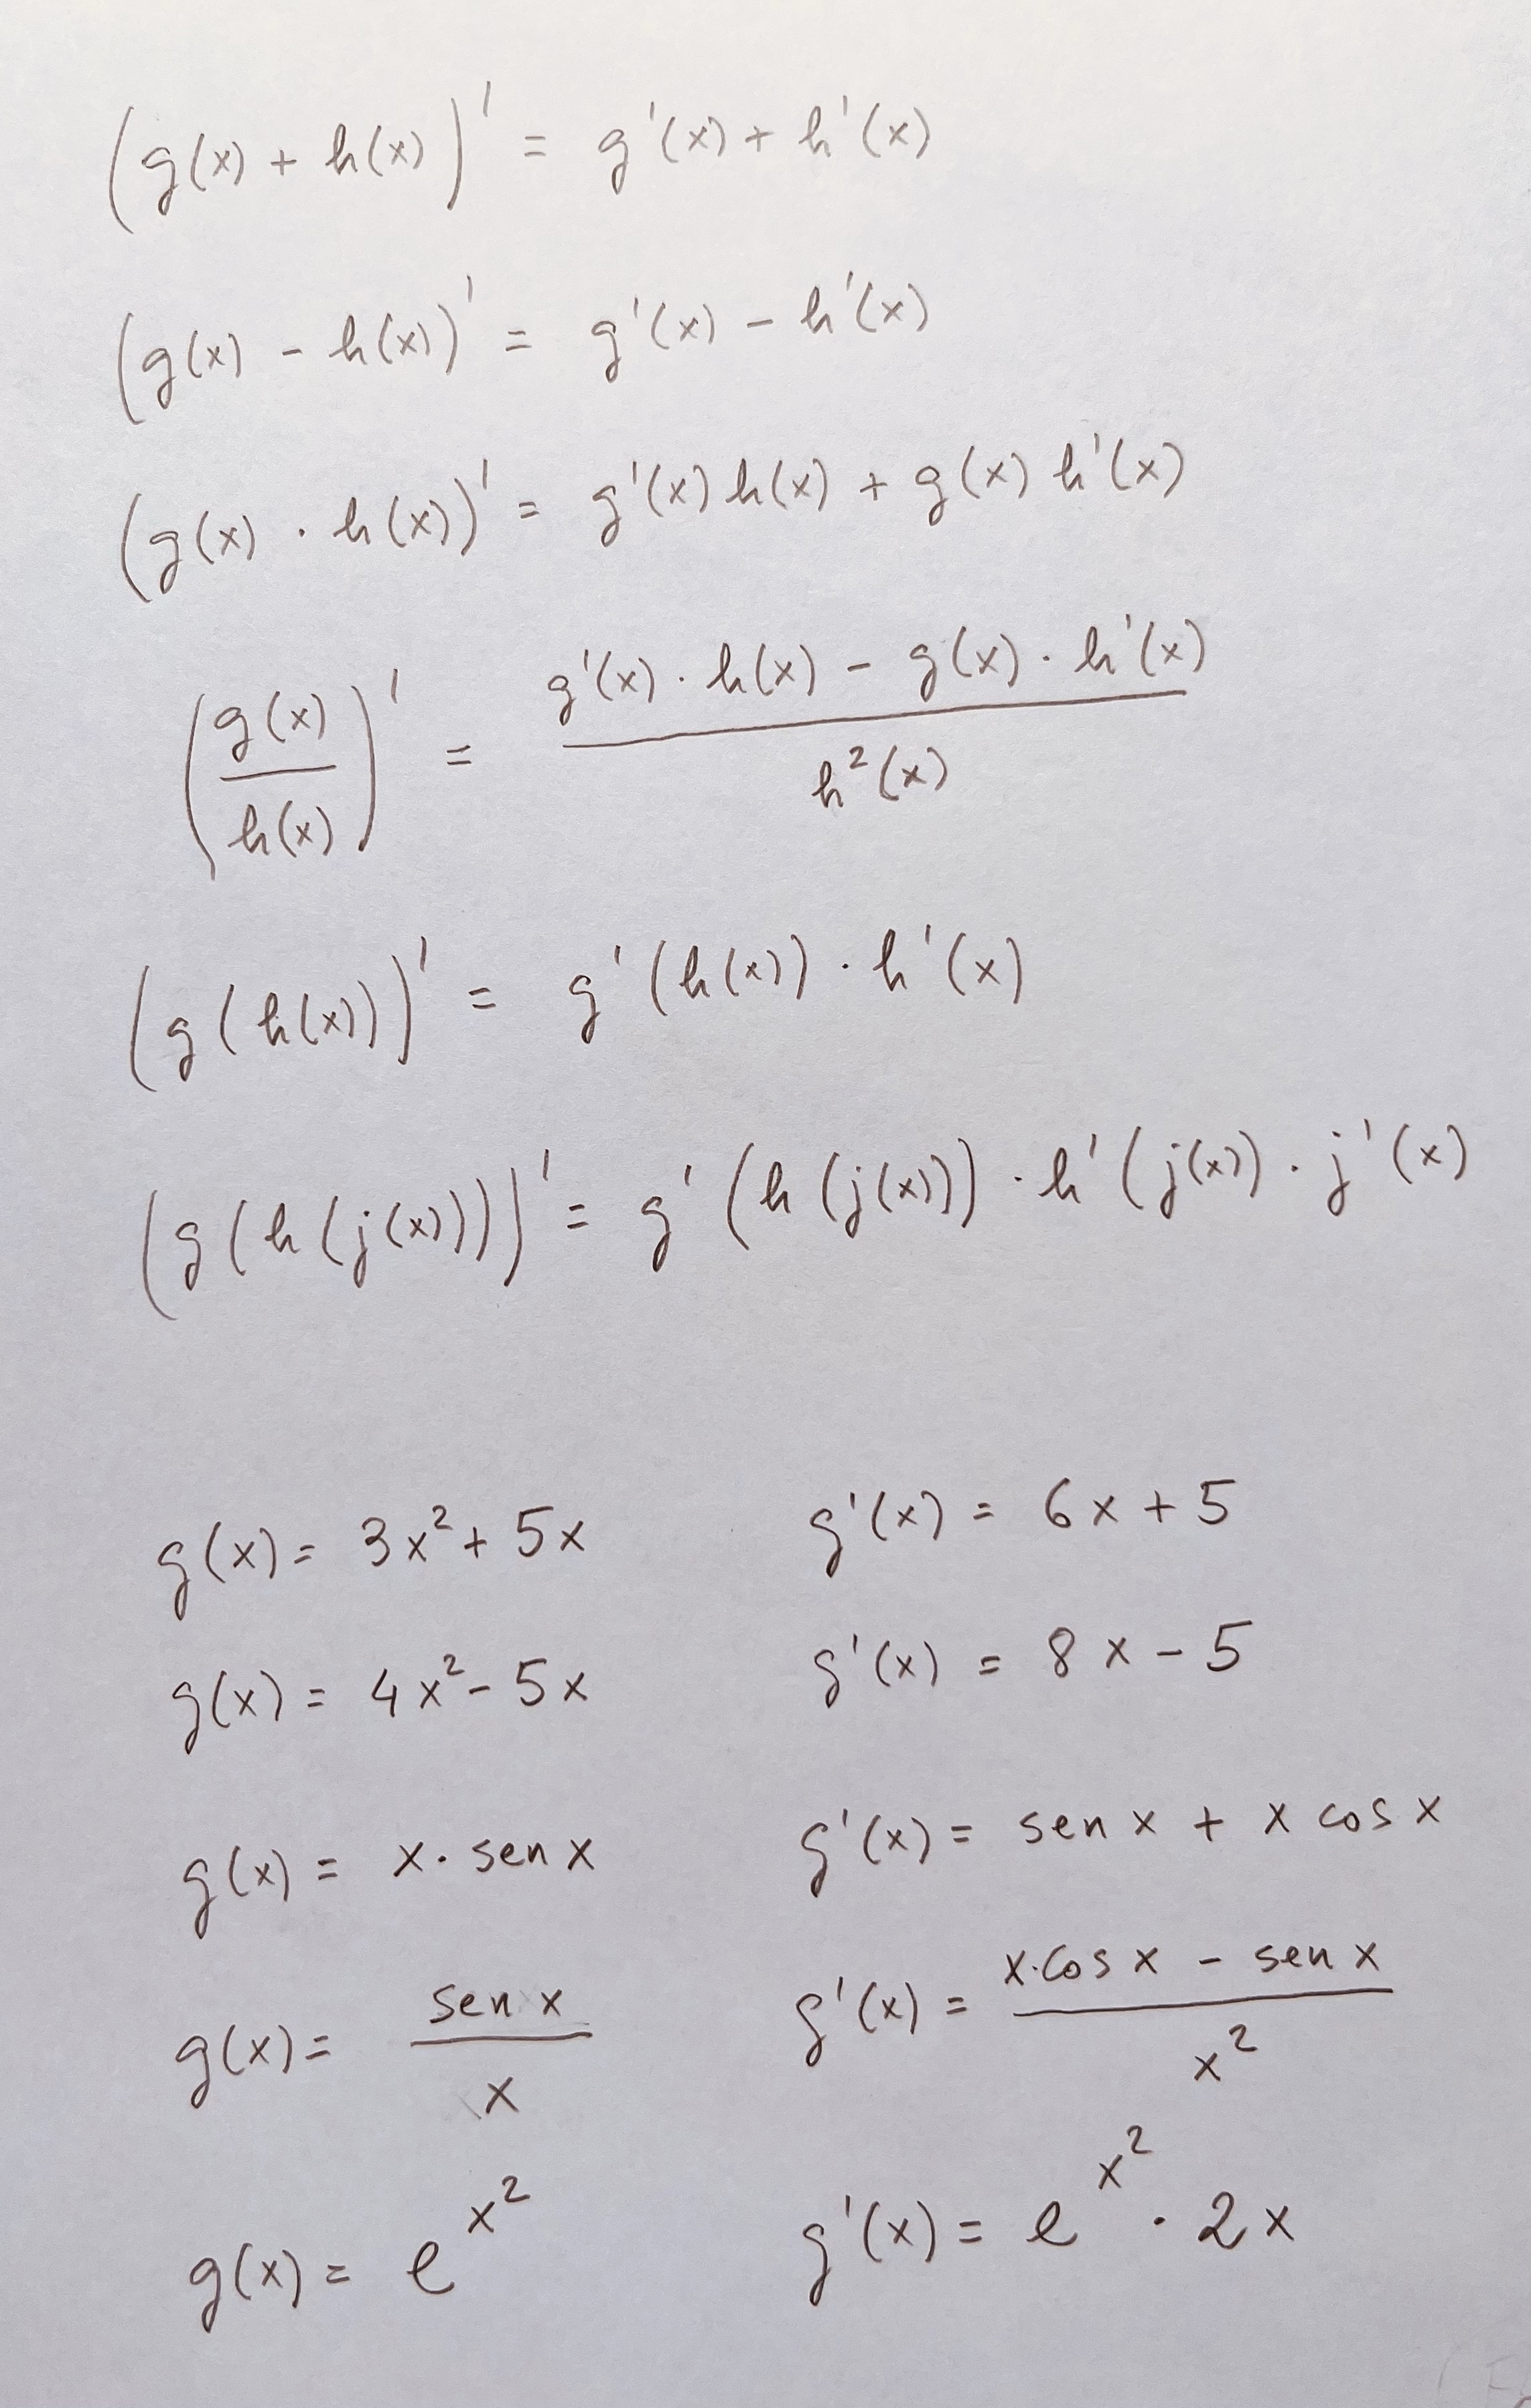 (g(x) + h(x))' = g'(x) + h'(x)
(g(x) - h(x))' = g'(x) - h'(x)
(g(x) · h(x))' = g'(x) h(x) + g(x) h'(x)
(g(x)/h(x))' = (g'(x) · h(x) - g(x) · h'(x))/h²(x)
(g(h(x)))' = g'(h(x)) · h'(x)
(g(h(j(x))))' = g'(h(j(x))) · h'(j(x)) · j'(x)
g(x) = 3x² + 5x g'(x) = 6x + 5
g(x) = 4x² - 5x g'(x) = 8x - 5
g(x) = x · sen x g'(x) = sen x + x cos x
g(x) = sen x/x g'(x) = (x·cos x - sen x)/x²
g(x) = e^x² g'(x) = e^x² · 2x